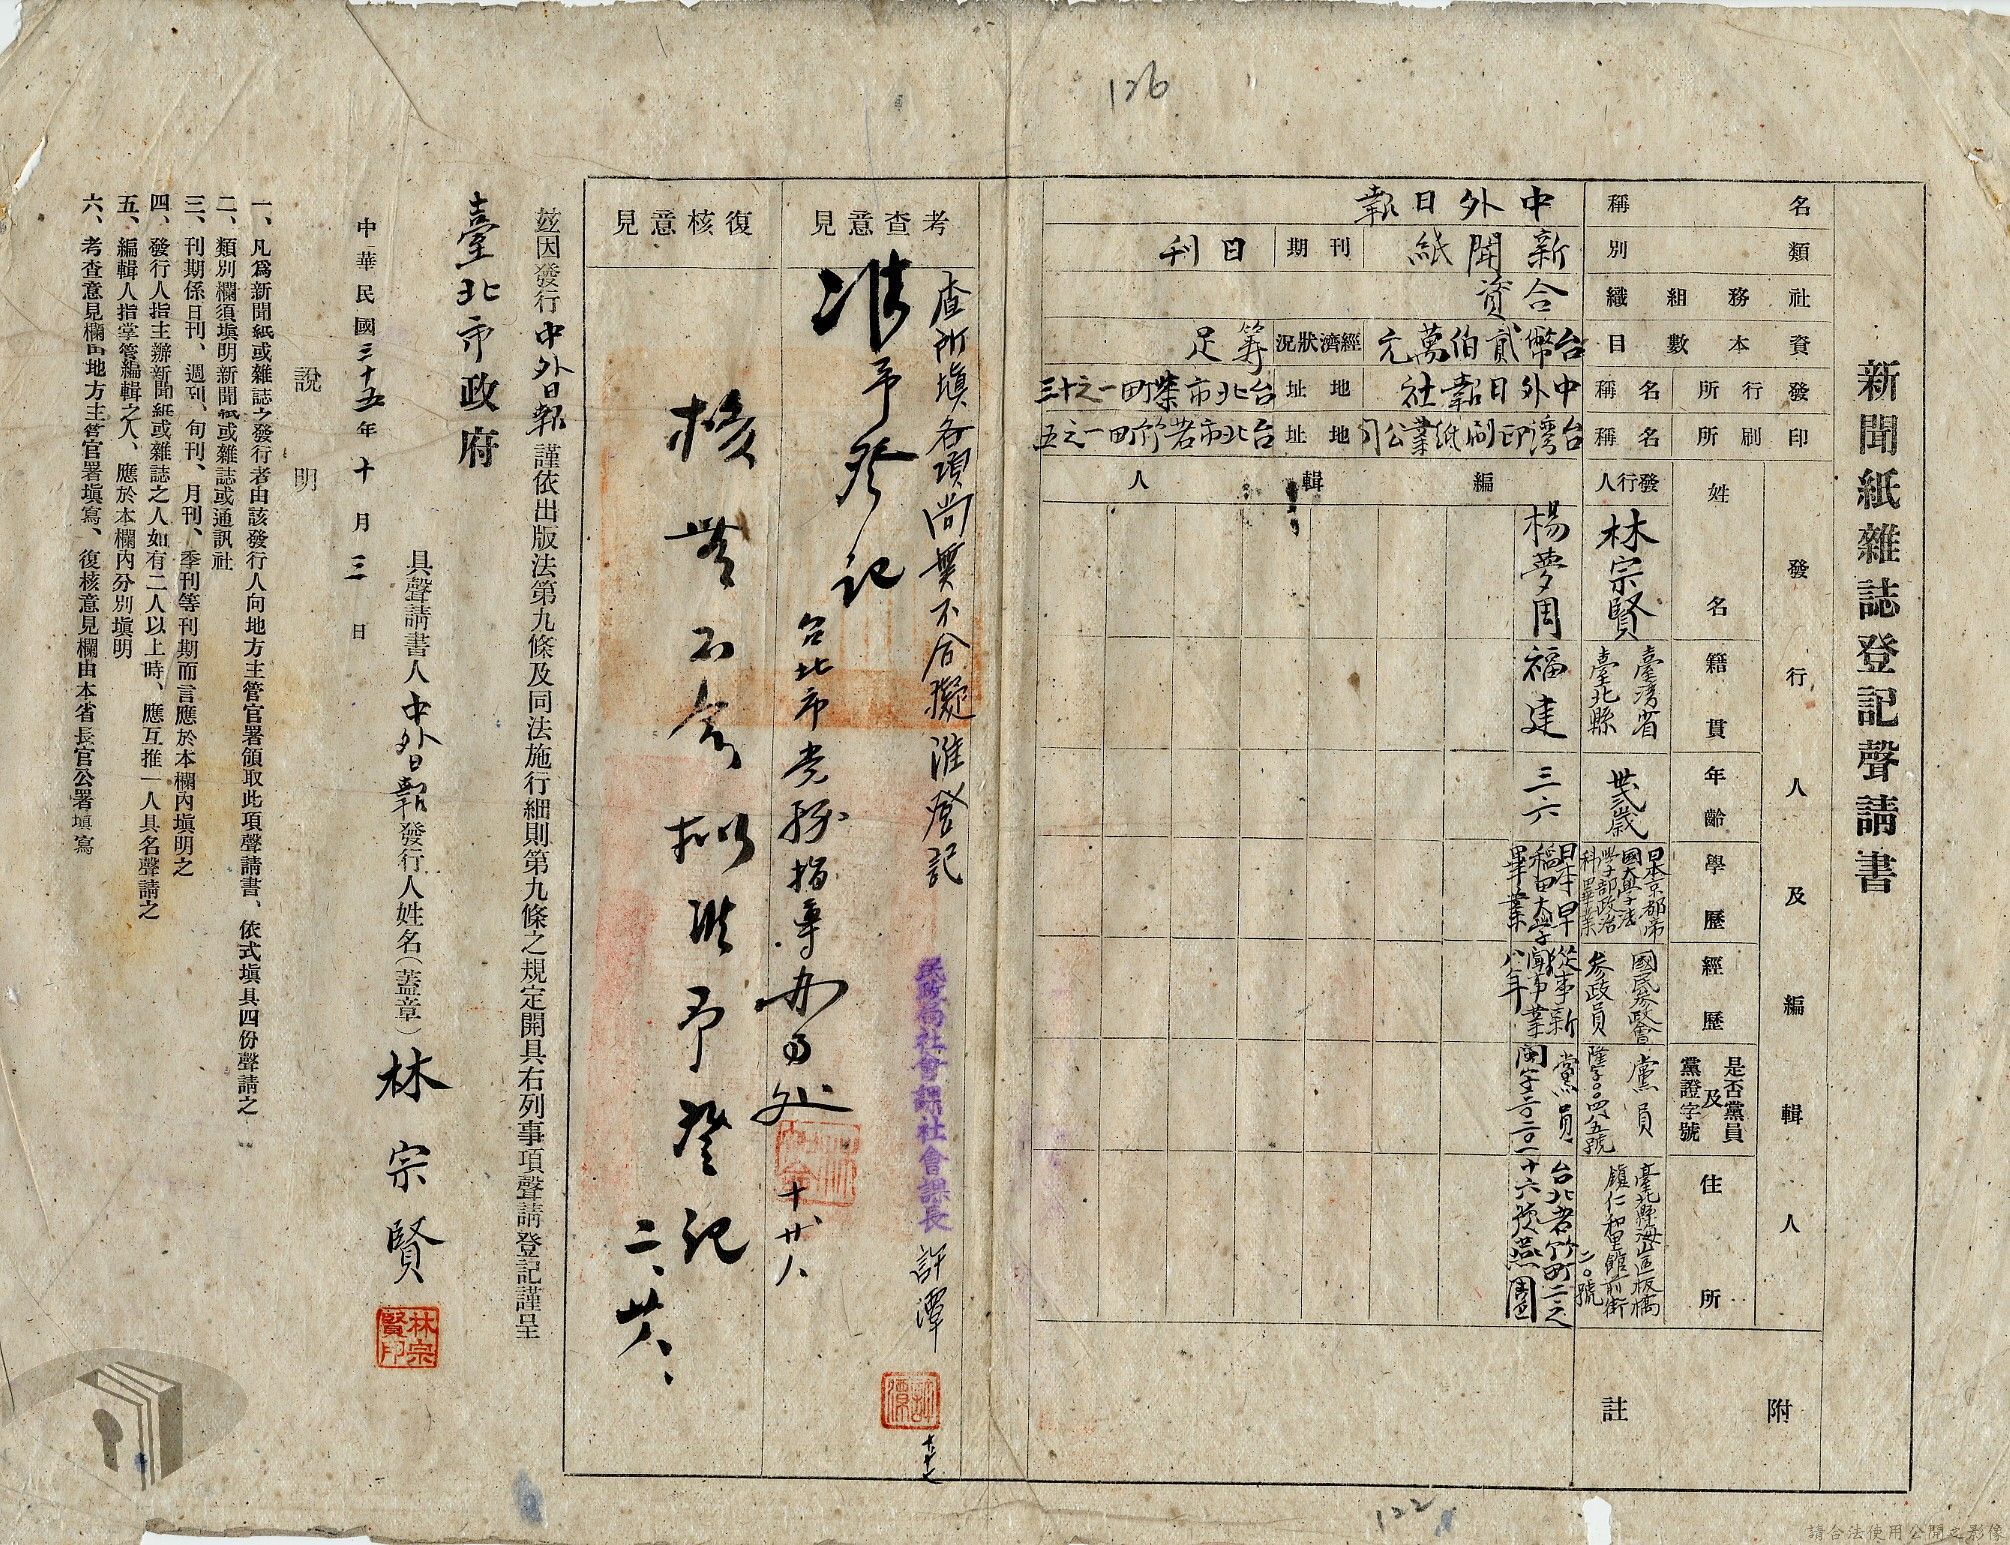 126
新聞紙雜誌登記聲請書
名稱 中外日報
類別 新聞紙 刊期 日刊
社務組織 合資
資本數目 台幣貳伯萬元 經濟狀況 籌足
發行所 名稱 中外日報社 地址 台北市榮町一之十三
印刷所 名稱 台灣印刷紙業公司 地址 台北市若竹町一之五
發行人及編輯人
姓名 籍貫 年齡 學歷 經歷 是否黨員及黨證字號 住所
發行人 林宗賢 臺灣省臺北縣 卅貳歲 日本京都帝國大學法學部政治科畢業 國民參政會參政員 黨員 隆字〇〇四八五號 臺北縣海山區板橋鎮仁和里館前街二〇號
編輯人
楊夢周 福建 三六 日本早稻田大學畢業 從事新聞事業八年 黨員 台北若竹町二之十六號燕園
附註
考查意見
查所填各項尚無不合擬准登記
民政局社會課社會課長 許潭
准予登記
台北市党務指導办事处
十 廿八
復核意見
核無不合擬准予登記
二、廿八、
茲因發行中外日報謹依出版法第九條及同法施行細則第九條之規定開具右列事項聲請登記謹呈
臺北市政府
具聲請書人中外日報發行人姓名(蓋章)林宗賢
林宗賢印
中華民國三十五年十月三日
說明
一、凡爲新聞紙或雜誌之發行者由該發行人向地方主管官署領取此項聲請書、依式填具四份聲請之
二、類別欄須填明新聞紙或雜誌或通訊社
三、刊期係日刊、週刊、旬刊、月刊、季刊等刊期而言應於本欄內填明之
四、發行人指主辦新聞紙或雜誌之人如有二人以上時、應互推一人具名聲請之
五、編輯人指掌管編輯之人、應於本欄內分別填明
六、考查意見欄由地方主管官署填寫、復核意見欄由本省長官公署填寫
122
請合法使用公開之影像